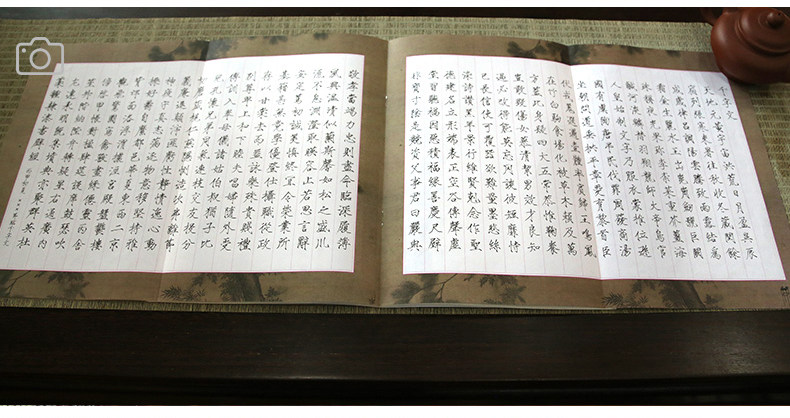 千字文
天地元黃宇宙洪荒日月盈昃辰
宿列張寒來暑往秋收冬藏閏餘
成歲律呂調陽雲騰致雨露結為
霜金生麗水玉出崑岡劍號巨闕
珠稱夜光果珍李柰菜重芥薑海
鹹河淡鱗潛羽翔龍師火帝鳥官
人皇始制文字乃服衣裳推位遜
國有虞陶唐弔民伐罪周發商湯
坐朝問道垂拱平章愛育黎首臣
伏戎羌遐邇壹體率賓歸王鳴鳳
在竹白駒食場化被草木賴及萬
方蓋此身髮四大五常恭惟鞠養
豈敢毀傷女慕貞絜男效才良知
過必改得能莫忘罔談彼短靡恃
己長信使可覆器欲難量墨悲絲
染詩讚羔羊景行維賢剋念作聖
德建名立形端表正空谷傳聲虛
堂習聽禍因惡積福緣善慶尺璧
非寶寸陰是競資父事君曰嚴與
敬孝當竭力忠則盡命臨深履薄
夙興溫凊似蘭斯馨如松之盛川
流不息淵澄取暎容止若思言辭
安定篤初誠美慎終宜令榮業所
基籍甚無竟學優登仕攝職從政
存以甘棠去而益詠樂殊貴賤禮
別尊卑上和下睦夫唱婦隨外受
傅訓入奉母儀諸姑伯叔猶子比
兒孔懷兄弟同氣連枝交友投分
切磨箴規仁慈隱惻造次弗離節
義廉退顛沛匪虧性靜情逸心動
神疲守真志滿逐物意移堅持雅
操好爵自縻都邑華夏東西二京
背邙面洛浮渭據涇宮殿盤鬱樓
觀飛驚圖寫禽獸畫綵仙靈丙舍
傍啟甲帳對楹肆筵設席鼓瑟吹
笙升階納陛弁轉疑星右通廣內
左達承明既集墳典亦聚群英杜
稾鍾隸漆書壁經